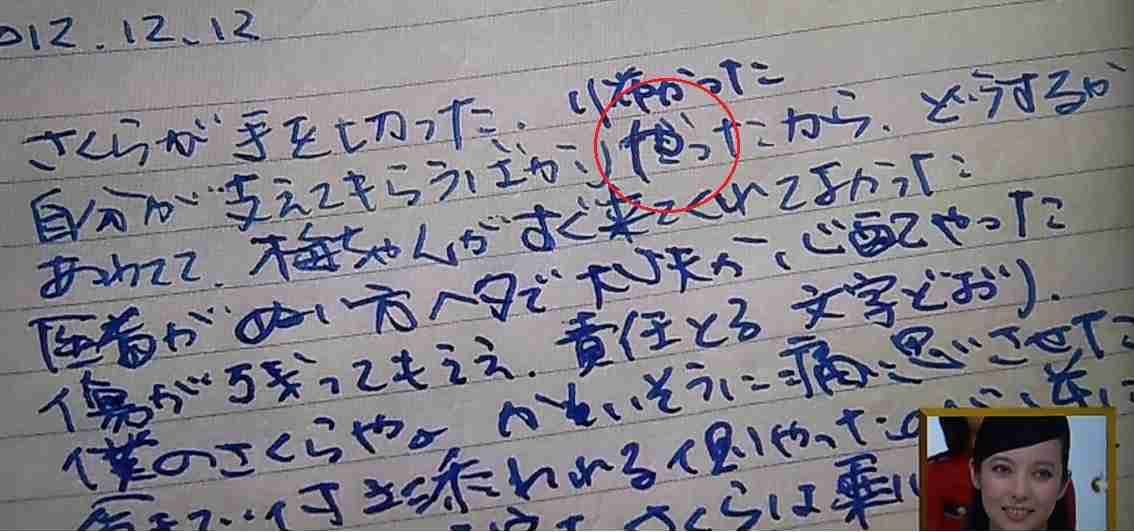 012.12.12
さくらが手を切った、
自分が支えてもらうばかり ったから、どうするか
あわてて、梅ちゃんがすぐ来てくれてよかった
医者がぬい方ヘタで大丈夫か、心配やった
傷が残ってもええ、責任とる 文字どおり、
僕のさくらや。かわいそうに痛い思いさせた
付き添われる側やったのが、逆に
さくらは